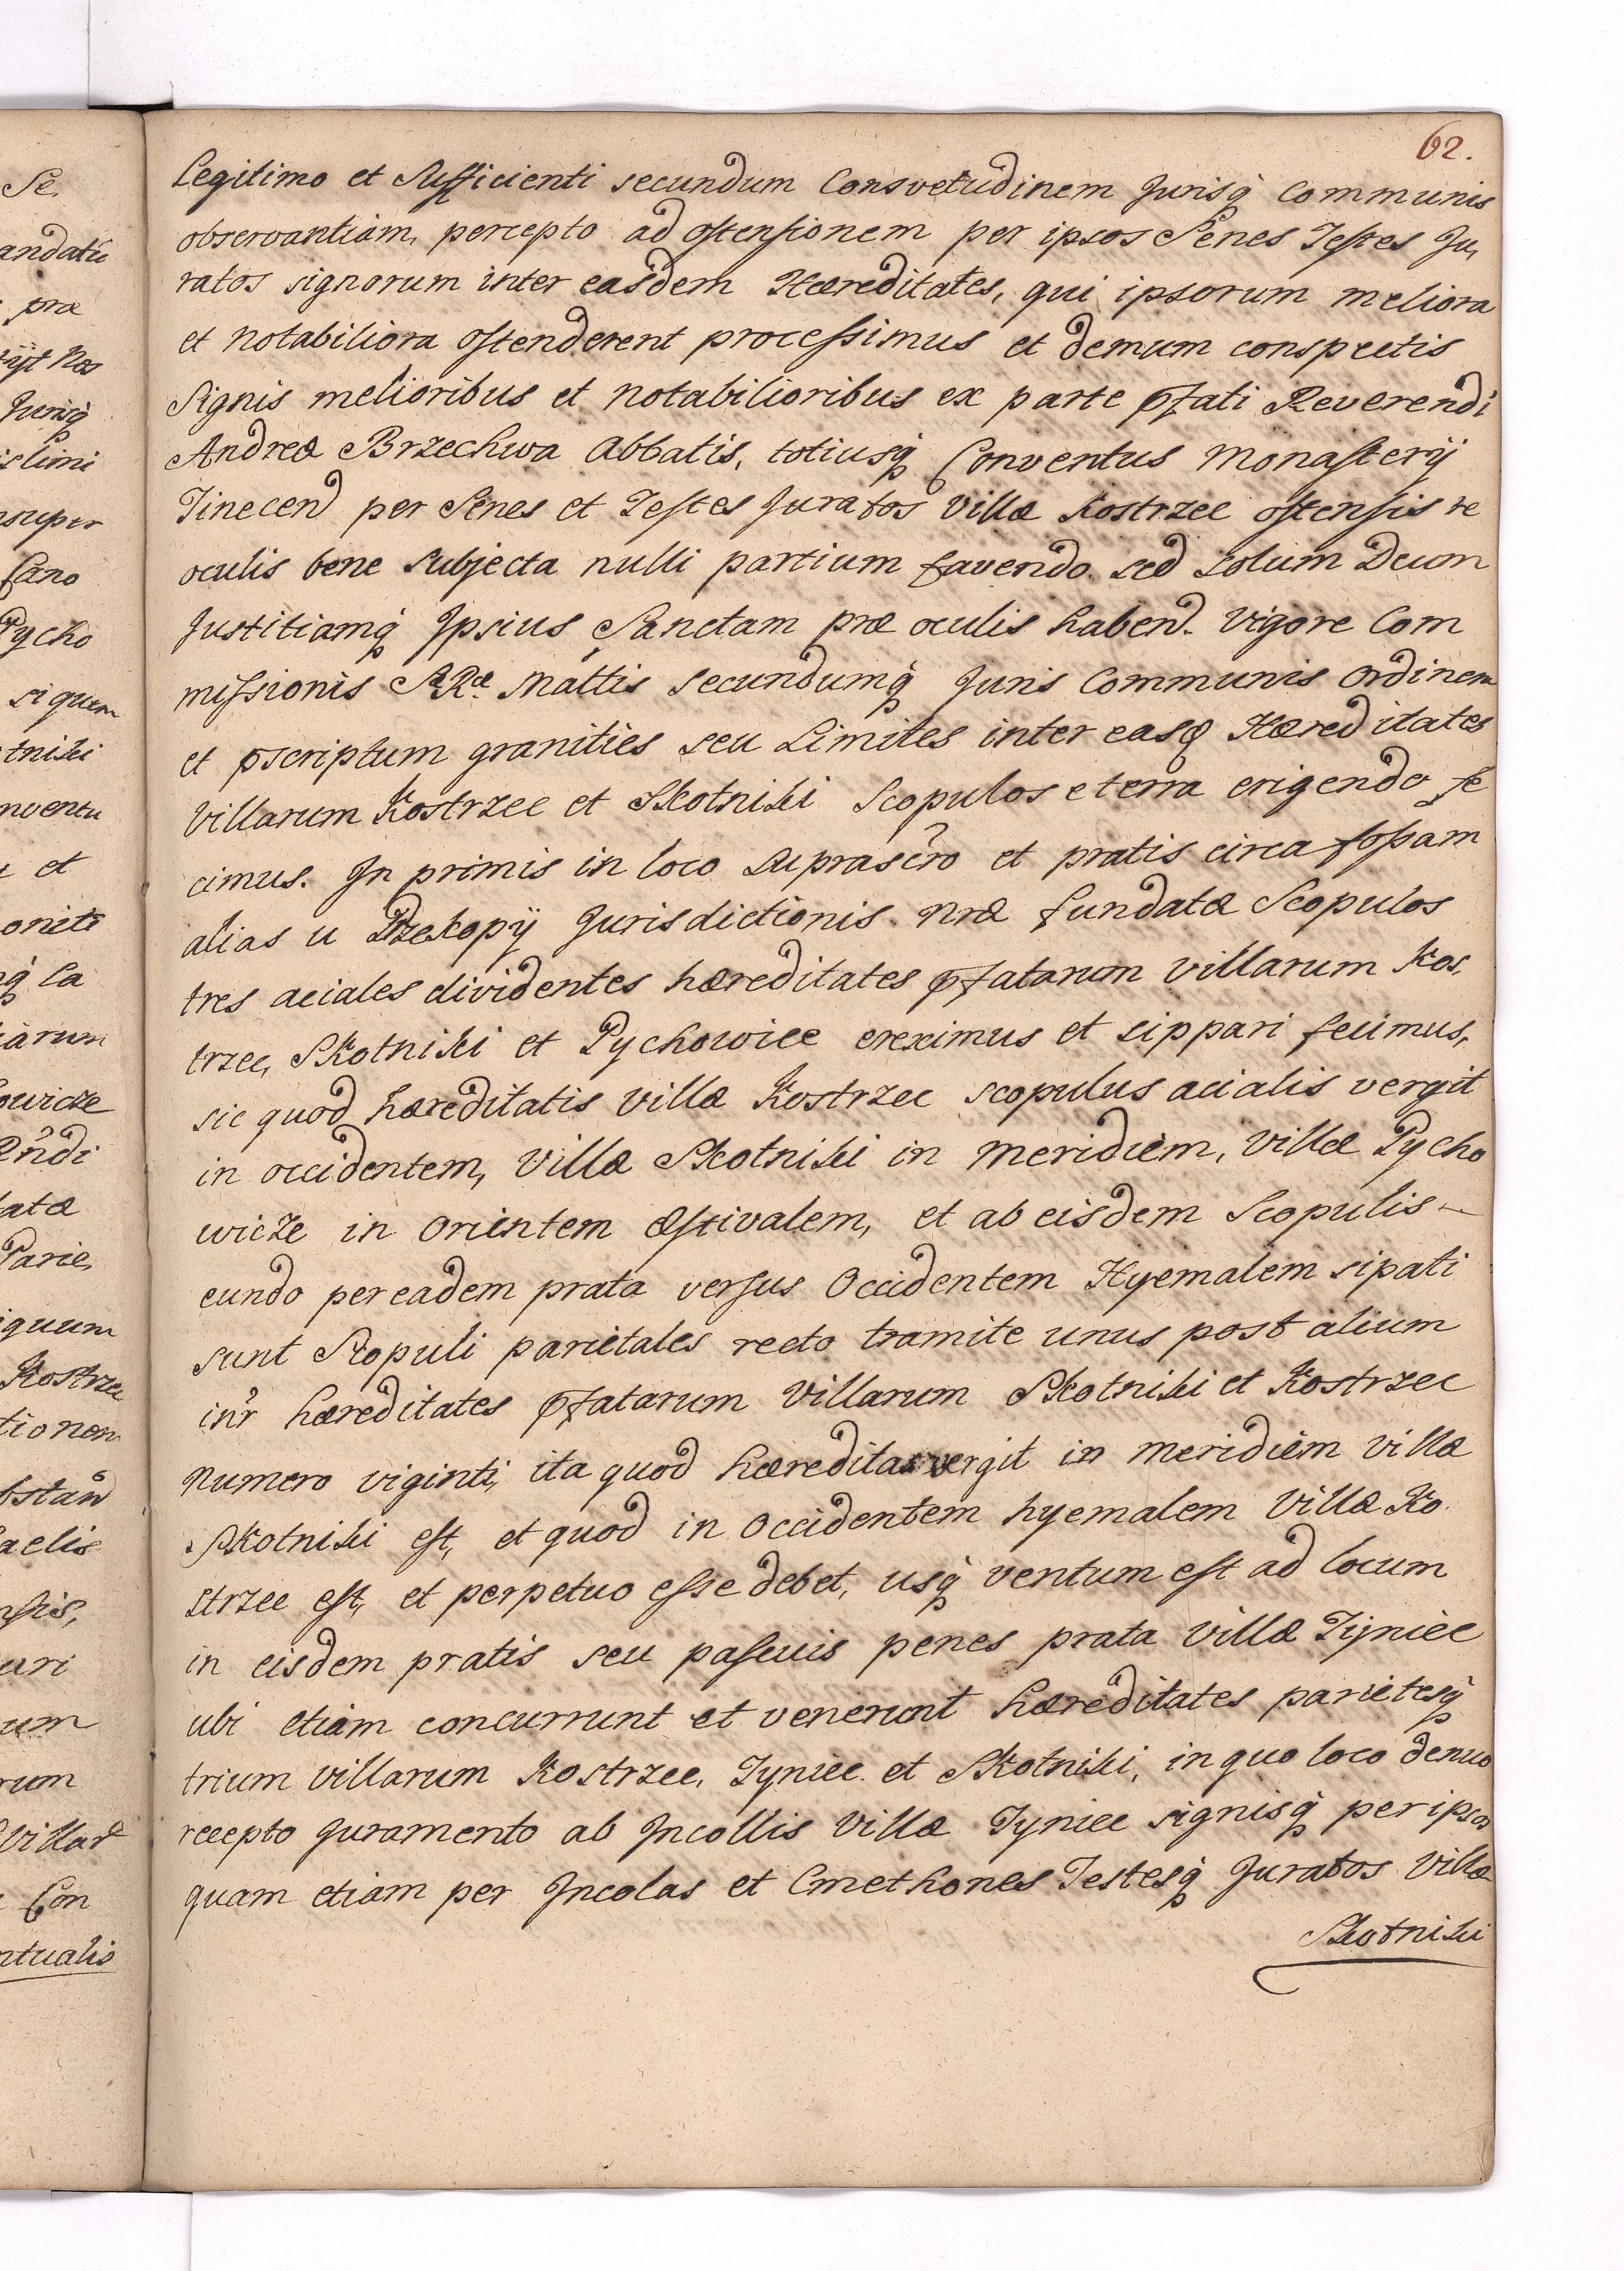 62.
Legitimo et Sufficienti secundum Consvetudinem Jurisq̃ Communis
observantiam, percepto ad ostensionem per ipsos Senes Testes Ju,
ratos signorum inter easdem Hæreditates, qui ipsorum meliora
et notabiliora ostenderent processimus et demum conspectis
Signis melioribus et notabilioribus ex parte ꝓfati Reverendi
Andreæ Brzechwa Abbatis, totiusq̃ Conventus Monasterÿ
Tinecen per Senes et Testes Juratos Villæ Kostrzec ostensis re
oculis bene subjecta nulli partium favendo sed solum Deum
Justitiamq̃ Ipsius Sanctam præ oculis haben. Vigore Com
missionis SRæ Mattis Secundumq̃ Juris Communis Ordinem
et ꝓscriptum granities seu Limites inter easꝗ Hæreditates
Villarum Kostrzec et Skotniki Scopulos e terra erigendo fe
cimus. In primis in loco suprascr̃o et pratis circa fossam
alias u Przekopÿ Jurisdictionis nræ fundatæ Scopulos
tres aciales dividentes hæreditates ꝓfatarum villarum Kos,
trzec, Skotniki et Pychowice ereximus et sippari fecimus,
sic quod hæreditatis villæ Kostrzec scopulus acialis vergit
in occidentem, Villæ Skotniki in meridiem, Villæ Pycho
wicze in Orientem æstivalem, et ab eisdem Scopulis
eundo per eadem prata versus Occidentem Hyemalem sipati
sunt Scopuli parietales recto tramite unus post alium
int̃r hæreditates ꝓfatarum Villarum Skotniki et Kostrzec
numero viginti, ita quod hæreditas vergit in meridiem villæ
Skotniki est, et quod in Occidentem hyemalem Villæ Ko
strzec est, et perpetuo esse debet, usq̃ ventum est ad locum
in eisdem pratis seu pascuis penes prata villæ Tyniec
ubi etiam concurrunt et venerunt hæreditates parietesq̃
trium villarum Kostrzec, Tyniec et Skotniki, in quo loco denuo
recepto Juramento ab Incollis Villæ Tyniec signisq̃ per ipsos
quam etiam per Incolas et Cmethones Testesq̃ Juratos Villæ
Skotniki